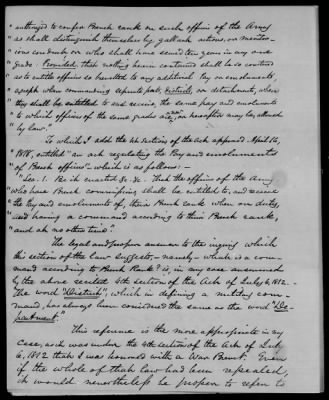 "authorized to confer Brevet rank on such officers of the Army
"as shall distinguish themselves by gallant actions, or merito-
"rious conduct, or who shall have served ten years in any one
"grade. Provided, that nothing herein contained shall be so construed
"as to entitle officers so brevetted to any additional Pay or emoluments,
"except when commanding separate posts, districts, or detachments, when
"they shall be entitled to and receive, the same pay and emoluments
"to which officers of the same grades are, now or hereafter may be, allowed
by law."
To which I add the 1st section of the Act approved April 16,
1818, entitled "an act regulating the Pay and emoluments
of Brevet officers" - which is as follows:
"Sec. 1. Be it enacted &c. &c. That the officers of the Army
who have Brevet commissions shall be entitled to, and receive
the Pay and emoluments of, their Brevet rank when on duty,
and having a command according to their Brevet rank,
and at no other time."
The legal and proper answer to the inquiry which
this section of the law suggests - namely - what is a com-
mand according to Brevet Rank? is, in my case answered
by the above recited 4th section of the Act of July 6, 1812.
The word "District", which in defining a military com-
mand, has always been considered the same as the word "De-
partment."
This reference is the more appropriate in my
case, as it was under the 4th section of the Act of July
6, 1812 that I was honored with a War Brevet. Even
if the whole of that law had been repealed,
it would nevertheless be proper to refer to